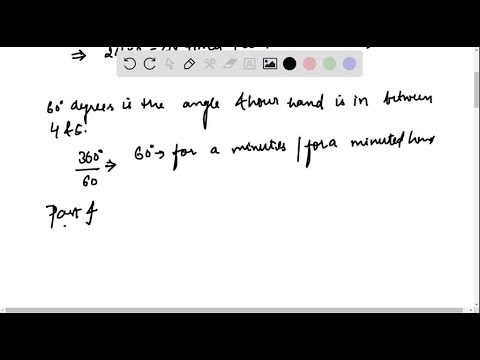 ⇒
60° degrees is the angle 4 hour hand is in between
4 & 6.
360°/60 ⇒ 60° → for a minuties / for a minuted hand
Part f